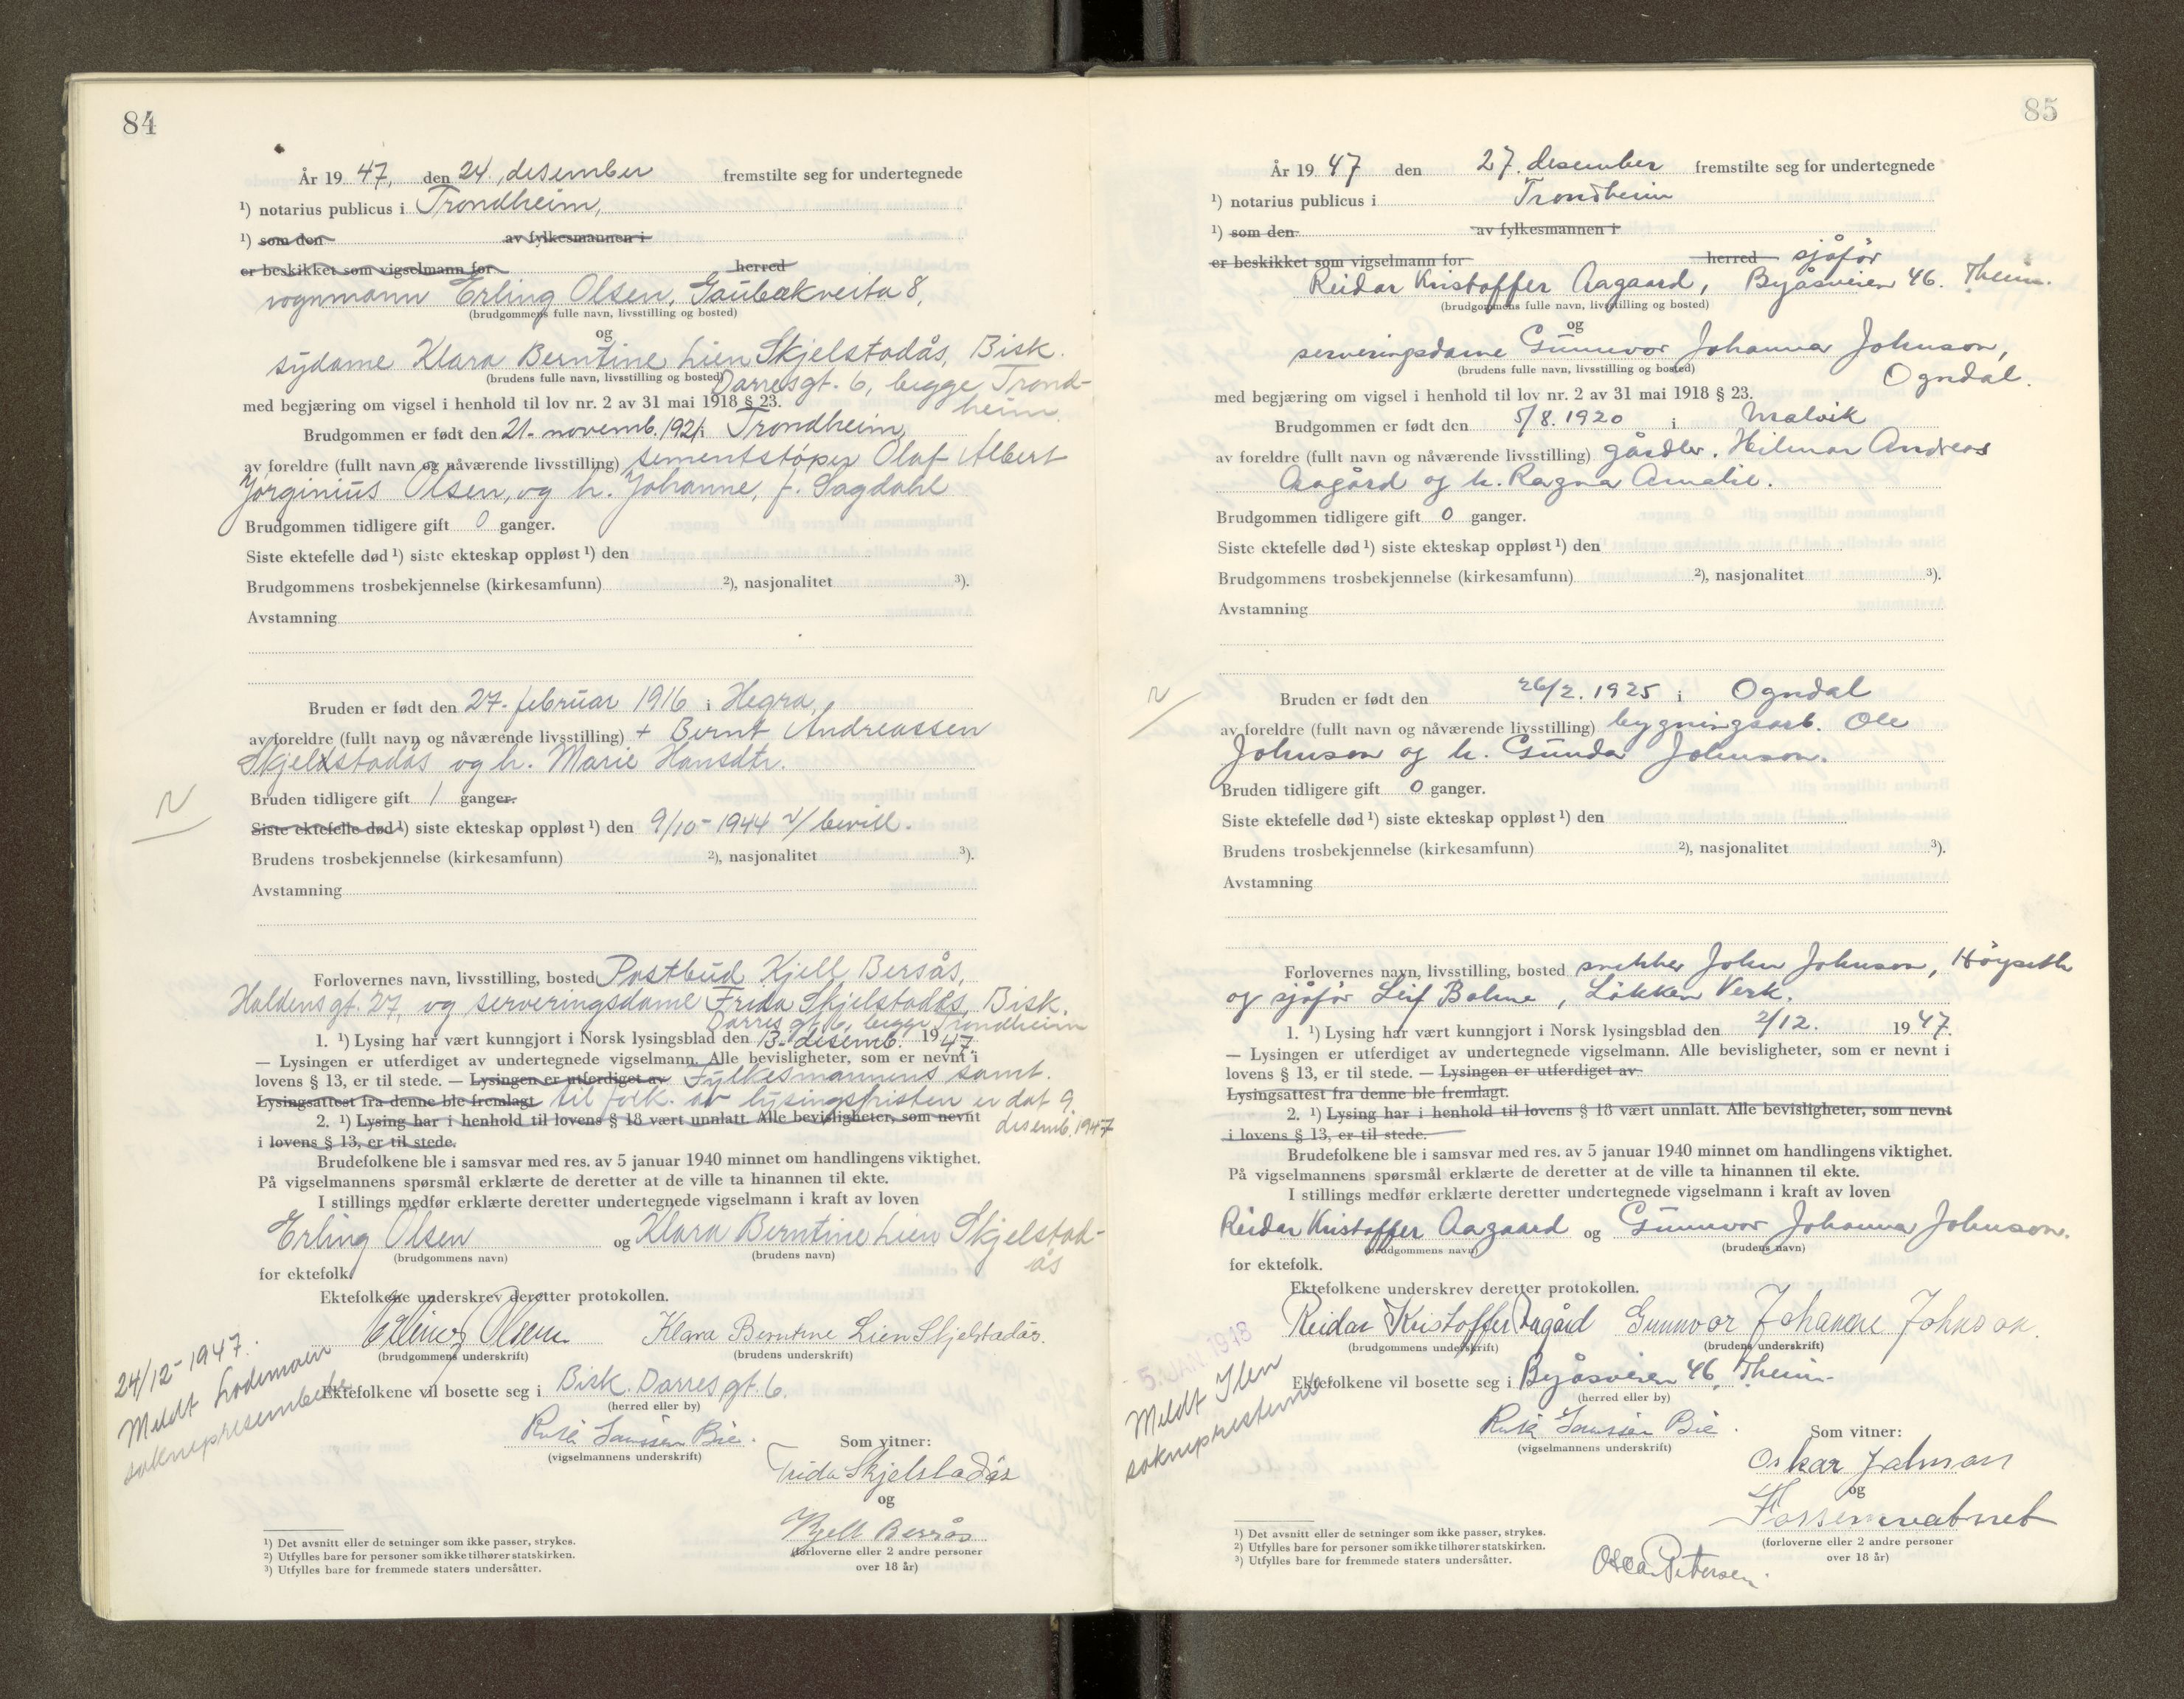 84
År 19 47, den 24. desember fremstilte seg for undertegnede
¹) notarius publicus i Trondheim,
¹) som den av fylkesmannen i
er beskikket som vigselmann for herred
vognmann Erling Olsen, Gaubækveita 8,
(brudgommens fulle navn, livsstilling og bosted)
og
sydame Klara Berntine Lien Skjelstadås, Bisk.
(brudens fulle navn, livsstilling og bosted)
Darresgt. 6, begge Trond-
heim
med begjæring om vigsel i henhold til lov nr. 2 av 31 mai 1918 § 23.
Brudgommen er født den 21. novemb. 1921 i Trondheim,
av foreldre (fullt navn og nåværende livsstilling) sementstöper Olaf Albert
Jörginius Olsen, og h. Johanne, f. Sagdahl
Brudgommen tidligere gift 0 ganger.
Siste ektefelle død ¹) siste ekteskap oppløst ¹) den
Brudgommens trosbekjennelse (kirkesamfunn) ²), nasjonalitet ³).
Avstamning
Bruden er født den 27. februar 1916 i Hegra,
av foreldre (fullt navn og nåværende livsstilling) + Bernt Andreassen
Skjelstadås og h. Marie Hansdtr.
Bruden tidligere gift 1 ganger.
N
Siste ektefelle død ¹) siste ekteskap oppløst ¹) den 9/10-1944 v/ bevill.
Brudens trosbekjennelse (kirkesamfunn) ²), nasjonalitet ³).
Avstamning
Forlovernes navn, livsstilling, bosted Postbud Kjell Bersås,
Haldensgt. 27, og serveringsdame Frida Skjelstadås, Bisk.
Darres gt. 6, begge Trondheim
1. ¹) Lysing har vært kunngjort i Norsk lysingsblad den 13. desemb. 19 47.
— Lysingen er utferdiget av undertegnede vigselmann. Alle bevisligheter, som er nevnt i
lovens § 13, er til stede. — Lysingen er utferdiget av Fylkesmannens samt.
Lysingsattest fra denne ble fremlagt til fork. av lysingsfristen er dat 9.
desemb. 1947
2. ¹) Lysing har i henhold til lovens § 18 vært unnlatt. Alle bevisligheter, som nevnt
i lovens § 13, er til stede.
Brudefolkene ble i samsvar med res. av 5 januar 1940 minnet om handlingens viktighet.
På vigselmannens spørsmål erklærte de deretter at de ville ta hinannen til ekte.
I stillings medfør erklærte deretter undertegnede vigselmann i kraft av loven
Erling Olsen og Klara Berntine Lien Skjelstad-
ås
(brudgommens navn) (brudens navn)
for ektefolk.
Ektefolkene underskrev deretter protokollen.
Erling Olsen Klara Berntine Lien Skjelstadås.
(brudgommens underskrift) (brudens underskrift)
24/12-1947.
Meldt Lademoen
sokneprestembede
Ektefolkene vil bosette seg i Bisk. Darres gt. 6.
(herred eller by)
(vigselmannens underskrift)
Som vitner:
Frida Skjelstadås
og
Kjell Bersås
(forloverne eller 2 andre personer
over 18 år)
¹) Det avsnitt eller de setninger som ikke passer, strykes.
²) Utfylles bare for personer som ikke tilhører statskirken.
³) Utfylles bare for fremmede staters undersåtter.
85
År 19 47 den 27. desember fremstilte seg for undertegnede
¹) notarius publicus i Trondheim
¹) som den av fylkesmannen i
er beskikket som vigselmann for herred sjåför
Reidar Kristoffer Aagaard, Byåsveien 46. Theim.
(brudgommens fulle navn, livsstilling og bosted)
og
serveringsdame Gunnvor Johanna Johnson,
(brudens fulle navn, livsstilling og bosted)
Ogndal.
med begjæring om vigsel i henhold til lov nr. 2 av 31 mai 1918 § 23.
Brudgommen er født den 5/8. 1920 i Malvik
av foreldre (fullt navn og nåværende livsstilling) gårdbr. Hilmar Andreas
Aagård og h. Ragna Amalie.
Brudgommen tidligere gift 0 ganger.
Siste ektefelle død ¹) siste ekteskap oppløst ¹) den
Brudgommens trosbekjennelse (kirkesamfunn) ²), nasjonalitet ³).
Avstamning
N
Bruden er født den 26/2. 1925 i Ogndal
av foreldre (fullt navn og nåværende livsstilling) bygningsarb. Ole
Johnson og h. Gunda Johnson.
Bruden tidligere gift 0 ganger.
Siste ektefelle død ¹) siste ekteskap oppløst ¹) den
Brudens trosbekjennelse (kirkesamfunn) ²), nasjonalitet ³).
Avstamning
Forlovernes navn, livsstilling, bosted snekker John Johnson, Höyseth
og sjåför Leif Bolme, Lökken Verk.
1. ¹) Lysing har vært kunngjort i Norsk lysingsblad den 2/12. 19 47.
— Lysingen er utferdiget av undertegnede vigselmann. Alle bevisligheter, som er nevnt i
lovens § 13, er til stede. — Lysingen er utferdiget av
Lysingsattest fra denne ble fremlagt.
2. ¹) Lysing har i henhold til lovens § 18 vært unnlatt. Alle bevisligheter, som nevnt
i lovens § 13, er til stede.
Brudefolkene ble i samsvar med res. av 5 januar 1940 minnet om handlingens viktighet.
På vigselmannens spørsmål erklærte de deretter at de ville ta hinannen til ekte.
I stillings medfør erklærte deretter undertegnede vigselmann i kraft av loven
Reidar Kristoffer Aagaard og Gunnvor Johanna Johnson.
(brudgommens navn) (brudens navn)
for ektefolk.
Ektefolkene underskrev deretter protokollen.
Reidar Kristoffer Aagård Gunnvor Johanne Johnson.
(brudgommens underskrift) (brudens underskrift)
5. JAN. 1948
Meldt Ilen
Ektefolkene vil bosette seg i Byåsveien 46, Theim.
(herred eller by)
(vigselmannens underskrift)
Som vitner:
Oskar
og
(forloverne eller 2 andre personer
over 18 år)
Oscar Petersen.
¹) Det avsnitt eller de setninger som ikke passer, strykes.
²) Utfylles bare for personer som ikke tilhører statskirken.
³) Utfylles bare for fremmede staters undersåtter.